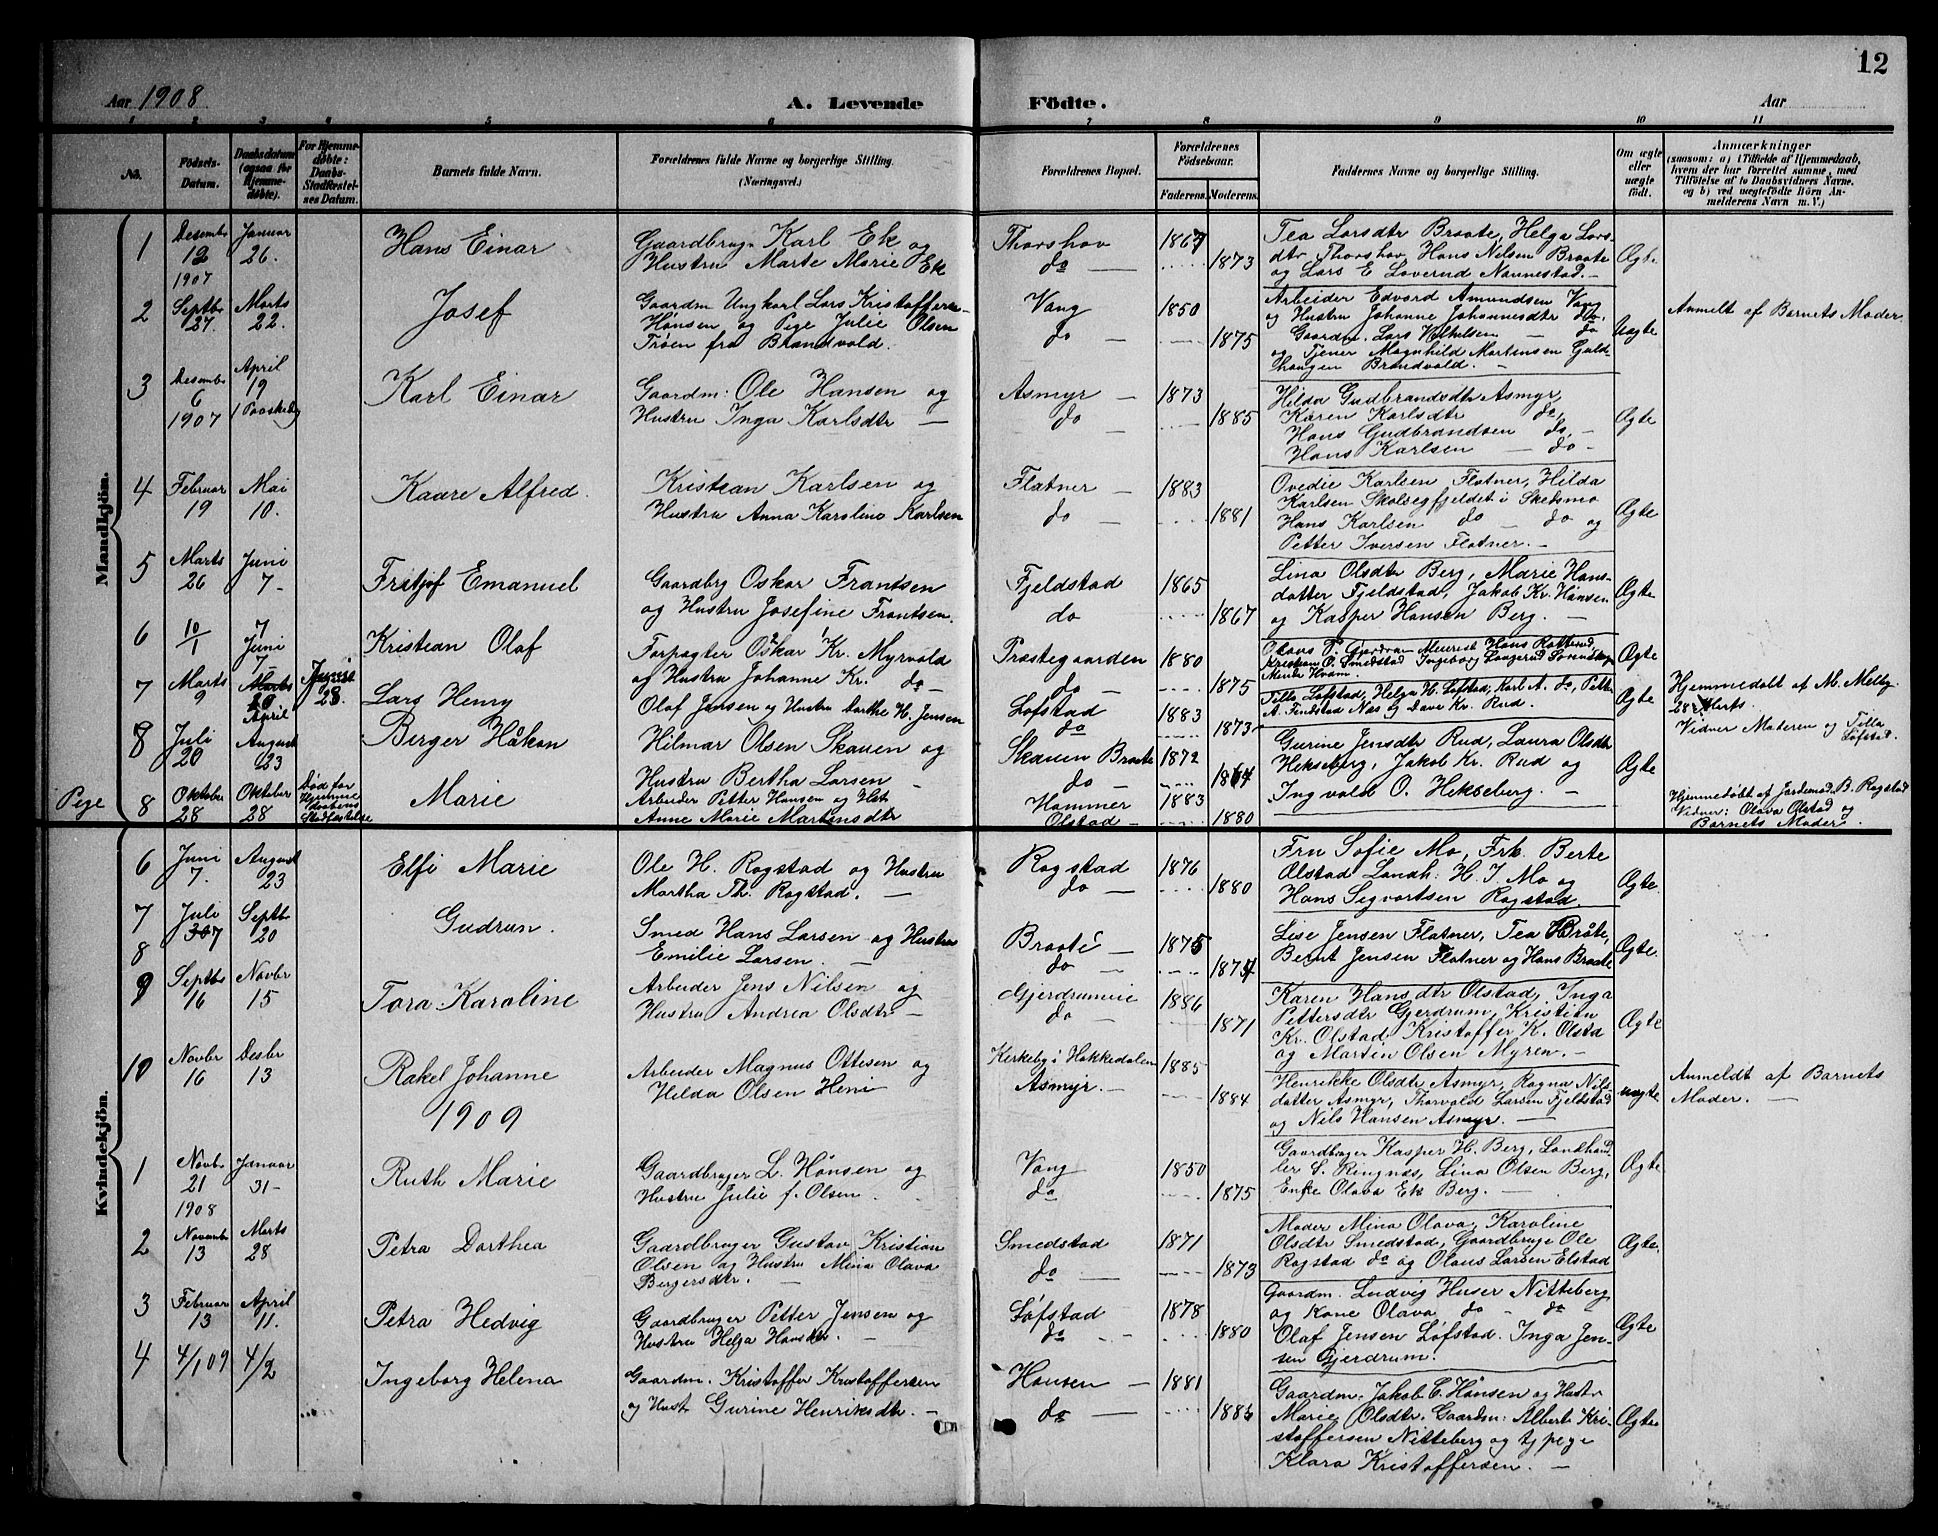 12
Aar 1908
A. Levende Födte.
Aar
1 2 3 4 5 6 7 8 9 10 11
No.
Födsels-
Datum.
Daabsdatum
(ogsaa for
Hjemme-
døbte).
For Hjemme-
døbte:
Daabs-
Stadfæstel-
ses Datum.
Barnets fulde Navn.
Forældrenes fulde Navne og borgerlige Stilling.
(Næringsvei.)
Forældrenes Bopæl.
Forældrenes
Födselsaar.
Faderens. Moderens.
Faddernes Navne og borgerlige Stilling.
Om ægte
eller
uægte
født.
Anmærkninger
(saasom: a) i Tilfælde af Hjemmedaab,
hvem der har forrettet samme, med
Tilføielse af to Daabsvidners Navne,
og b) ved uægtefødte Börn An-
melderens Navn m. V.)
Mandkjön.
1 Desembr 12 1907 Januar 26. Hans Einar
Gaardbruger Karl Ek og
Hustru Marte Marie Ek
Thorshov
do —
1867
1873
Tea Larsdtr Braate, Helga Lars-
dtr Thorshov Hans Nilsen Braate
og Lars E Loverud Nannestad. —
Ægte
2 Septbr 27. Marts 22. Josef
Gaardm Ungkarl Lars Kristoffersen
Hønsen og Pige Julie Olsen
Trøen fra Brandvold.
Vang
do —
1850
1875
Arbeider Edvard Amundsen Vang
og Hustru Johanne Johannesdtr do.
Gaardm. Lars — do
og Tjener Magnhild Martensen Guld-
haugen Brandvold. —
Uægte
Anmelt af Barnets Moder.
3 Desembr 6 1907 April 19 1 Paaskedag Karl Einar
Gaardm: Ole Hansen og
Hustru Inga Karlsdtr —
Asmyr —
do —
1873
1885
Hilda Gudbrandsdtr Asmyr,
Karen Karlsdtr do,
Hans Gudbrandsen do, —
Hans Karlsen — do —
Ægte
4 Februar 19 Mai 10. Kaare Alfred.
Kristean Karlsen og
Hustru Anna Karoline Karlsen
Flatner —
do —
1883
1881
Ovedie Karlsen Flatner, Hilda
Karlsen Skolsegfjeldet i Skedsmo
Hans Karlsen do — do og
Petter Iversen Flatner. —
Ægte
5 Marts 26 Juni 7— Fritjof Emanuel
Gaardbrg Oskar Frantsen
og Hustru Josefine Frantsen.
Fjeldstad
do
1865
1867
Lina Olsdtr Berg, Marie Hans-
datter Fjeldstad, Jakob Kr. Hansen
og Kasper Hansen Berg. —
Ægte
6 10/1 7 Juni Kristean Olaf
Forpagter Oskar Kr. Myrvold
og Hustru Johanne Kr. do —
Præstegaarden
do —
1880
1875
Olaus P. Gjerdrum Meierist Hans Rotterud
Kristian O. Smedstad Ingeborg
Hvam.
Ægte
7 Marts 9 April Juni 28. Lars Henry
Olaf Jensen og Hustru Dorthe H. Jensen
Løfstad
do
1883
1873
Tilla Løfstad, Helga H. Løfstad, Karl A. do, Petter
A. Findstad Næs og Kr. Rud.
Ægte
Hjemmedøbt af M. Melby
28 Marts.
Vidner Moderen og Tilla
Løfstad.
8 Juli 20 August 23 Berger Håkon
Hilmar Olsen Skauen og
Hustru Bertha Larsen —
Skauen Braate
do —
1872
1867
Gurine Jensdtr Rud, Laura Olsdtr
Hekseberg, Jakob Kr. Rud og
Ingvald O. Hekseberg. —
Ægte
Pige 8 Oktober 28 Oktober 28 Død før
Stadfæstelse
Marie
Arbeider Petter Hansen og Hst
Anne Marie Martinsdtr
Hammer
Olstad —
1883
1880
Hjemmedøbt af Jordemod. B. Rogstad
Vidner: Olava Olstad og
Barnets Moder.
Kvindekjön.
6 Juni 7. August 23 Elfi Marie
Ole H. Rogstad og Hustru
Martha Th. Rogstad. —
Rogstad
do —
1876
1880
Fru Sofie Mo, Frk. Berte
Olstad Landh: H. J. Mo og
Hans Sigvartsen Rogstad.
Ægte.
7 8 Juli Septbr 20 Gudrun.
Smed Hans Larsen og Hustru
Emilie Larsen. —
Braate —
do —
1875
1874
Lise Jensen Flatner, Tea Bråte,
Bernt Jensen Flatner og Hans Braate
Ægte.
9 Septbr 16 Novbr 15 Tora Karoline
Arbeider Jens Nilsen og
Hustru Andrea Olsdtr —
Gjerdrumeie
do —
1886
1871
Karen Hansdtr Olstad, Inga
Pettersdtr Gjerdrum, Kristian
Kr. Olstad, Kristoffer K. Olsta
og Martin Olsen Myren. —
Ægte
10 Novbr 16 Desbr 13 Rakel Johanne
Arbeider Magnus Ottesen og
Hilda Olsen Heni
Kirkeby i Hakkedalen
Asmyr. —
1885
1884
Henrikke Olsdtr Asmyr, Ragna Nils-
datter Asmyr, Thorvald Larsen Fjeldstad
og Nils Hansen Asmyr —
uægte
Anmeldt af Barnets
Moder. —
1909
1 Novbr 21 1908 Januar 31— Ruth Marie
Gaardbruger L. Hønsen og
Hustru Julie f. Olsen.
Vang
do
1850
1875
Gaardbruger Kasper H. Berg, Landhand-
ler S. Ringnæs, Lina Olsen Berg,
Enke Olava Ek Berg. —
Ægte
2 November 13 Marts 28 Petra Dorthea
Gaardbruger Gustav Kristian
Olsen og Hustru Mina Olava
Bergersdtr. —
Smedstad
do —
1871
1873
Moder Mina Olava, Karoline
Olsdtr Smedstad, Gaardbruge Ole
Rogstad do og Olaus Larsen Elstad
Ægte.
3 Februar 13 April 11. Petra Hedvig
Gaardbruger Petter Jensen og
Hustru Helga Hansdtr. —
Løfstad
do —
1878
1880
Gaardm. Ludvig Huser Nitteberg
og Kone Olava do — do
Olaf Jensen Løfstad. Inga Jen-
sen Gjerdrum.
Ægte
4 4/1 09 4/2 Ingeborg Helena
Gaardm. Kristoffer Kristoffersen
og Hust Gurine Henriksdtr. —
Hønsen —
do —
1881
1886
Gaardm. Jakob C. Hønsen og Hustr
Marie Olsdtr. Gaardm: Albert Kri-
stoffersen Nitteberg og tj pige
Klara Kristoffersen. —
Ægte